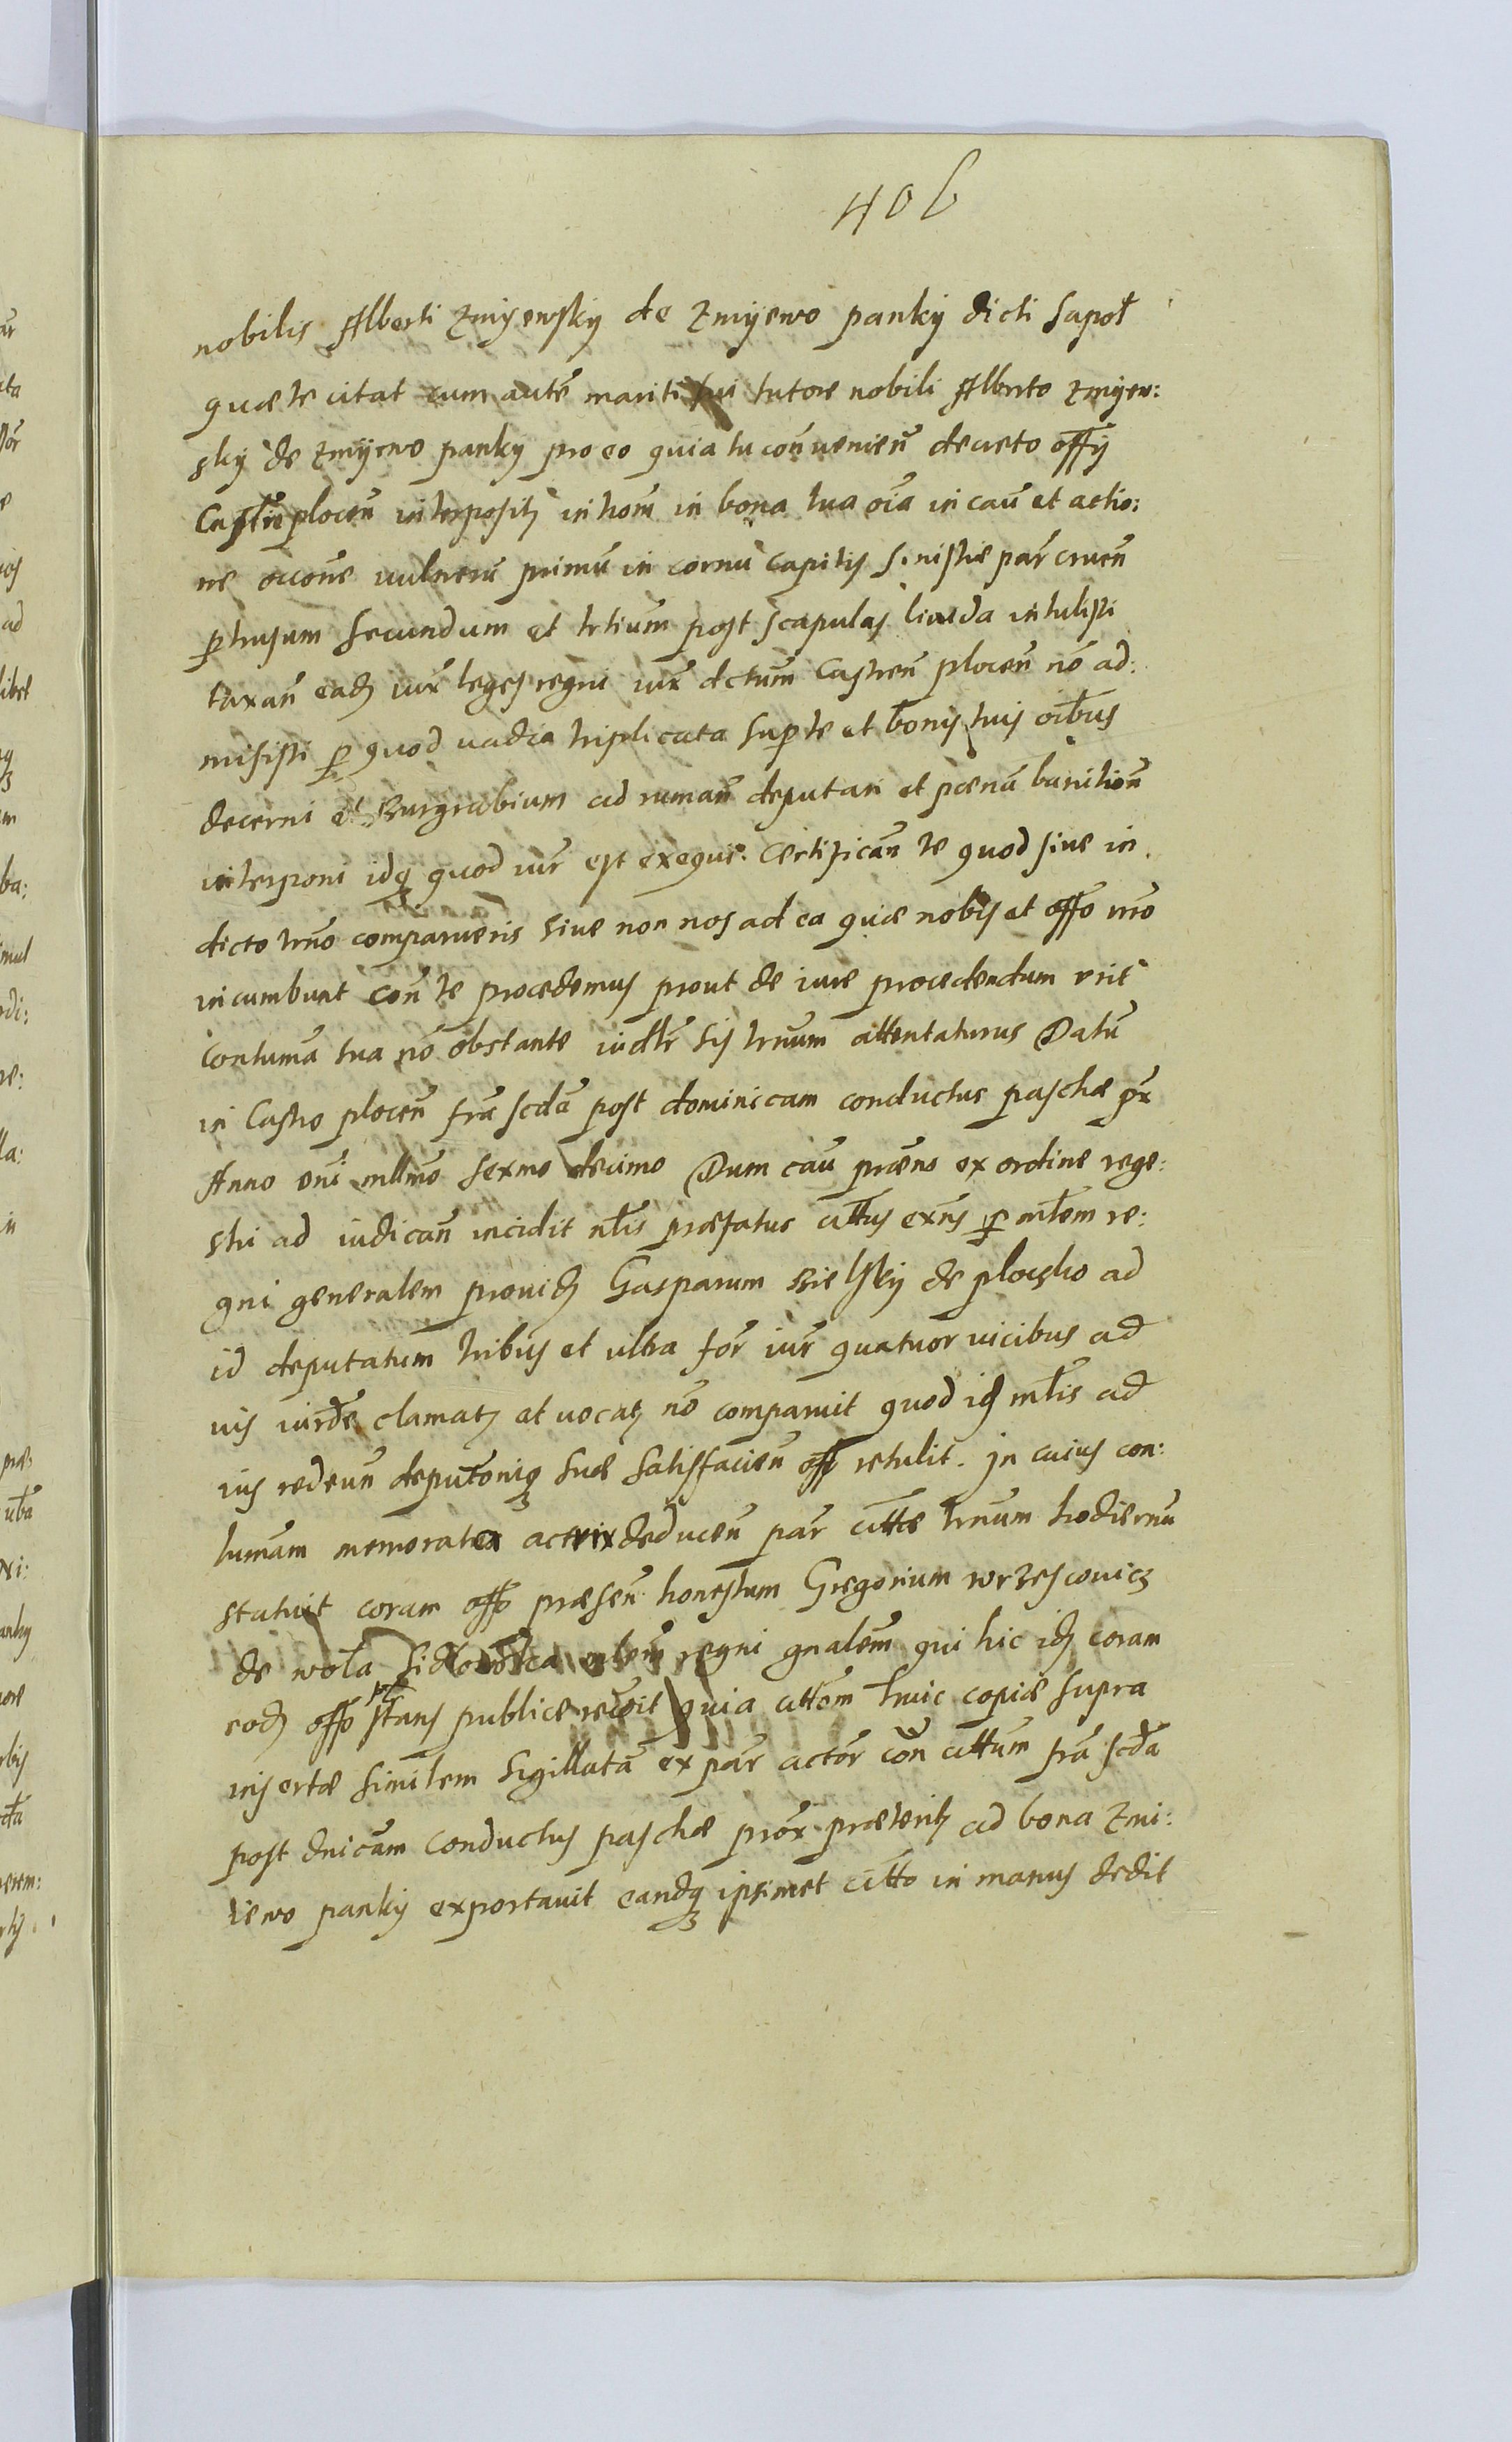 406
nobilis Alberti Zmijewsky de Zmijewo panky dicti sapoł
quæ te citat cum autē mariti sui tutore nobili Alberto Zmijew:
sky de Zmijewo panky pro eo quia tu conveniēn decreto offÿ
Castri plocēn interpositӡ inhoīn in bona tua oīa in caū et actio:
ne occōne vulnerū primū in cornu capitis sinistræ par̄ cruēn
ptusum secundum et tertium post scapulas livida intulisti
taxan̄ eadӡ iux̄ leges regni iux̄ dctum Castren̄ plocen̄ nō ad:
misisti p quod vadia triplicata sup te et bonis tuis oībus
decerni et Burgrabium ad ruman̄ deputari et pœnā banitioīn
interponi idqӡ quod iur̄ est exequi. Certifican̄ te quod sive in
dicto trno comparueris sive non nos ad ea quæ nobis et offo nro
incumbunt con̄ te procedemus prout de iure procedendum erit
contumā tua nō obstante iudtr̄ sis trnum attentaturus Datū
in Castro plocen̄ fra scda post dominicam conductus paschæ pr̄x
Anno Dni mllmo sexmo decimo Dum cau præns ex ordine rege:
stri ad iudican̄ incidit nłis præfatus citłus exns p młem re:
gni generalem providӡ Gasparum Bielsky de plocsko ad
id deputatum tribus et ultra for̄ iur̄ quatuor vicibus ad
ius iurde clamatӡ et vocatӡ nō comparuit quod idӡ młis ad
ius redeun̄ deputōniqӡ suæ satisfacien̄ offo retulit. In cuius con:
tumam memorata actrix deducen̄ par̄ cittæ trnum hodiernū
statuit coram offo præsen̄ honestum Gregorium Wrzescovicz
de wola regni gnalem qui hic idӡ coram
eodӡ offo stans publice recoit quia cittōm huic copiæ supra
insertæ similem sigillatā ex par̄ actōr con̄ cittum fra scda
post dnicam Conductus paschæ prōx præteritӡ ad bona Zmi:
iewo panky exportavit eandqӡ ipsimet citto in manus dedit